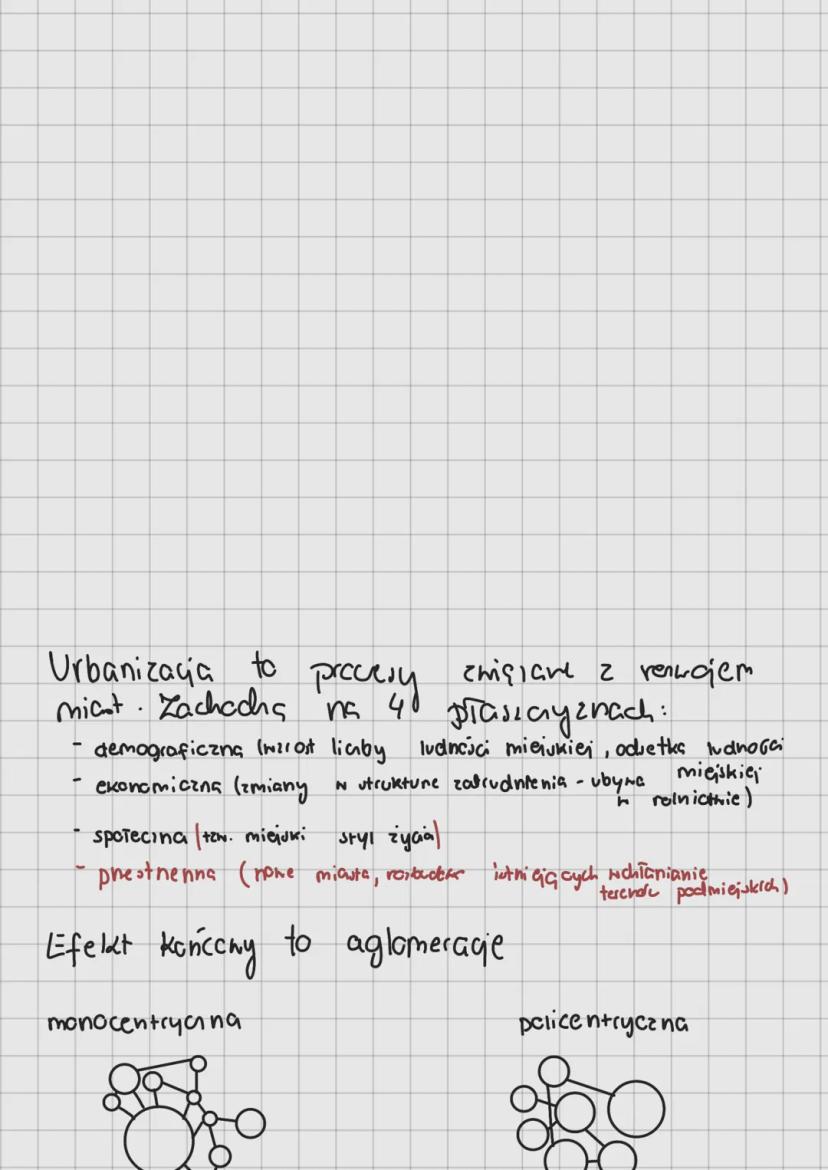 Urbanizacja to procesy związane z rozwojem
miast. Zachodzą na 4 płaszczyznach:
- demograficzna (wzrost liczby ludności miejskiej, odsetka ludności
miejskiej
- ekonomiczna (zmiany w strukturze zatrudnienia - ubywa
w rolnictwie)
- społeczna (tzw. miejski styl życia)
- przestrzenna (nowe miasta, rozbudowa istniejących wchłanianie
terenów podmiejskich)
Efekt końcowy to aglomeracje
monocentryczna
policentryczna